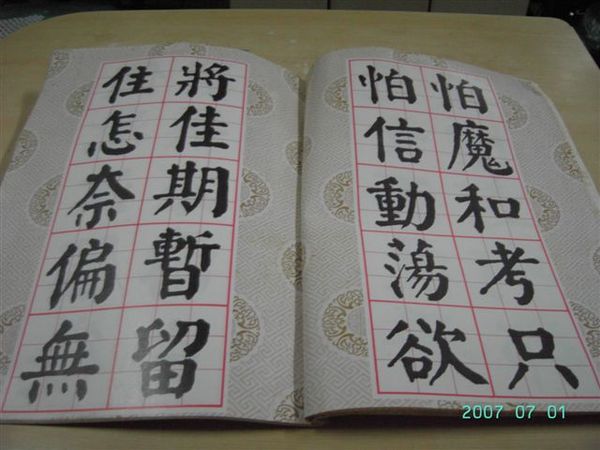 怕魔和考只
怕信動蕩欲
將佳期暫留
住怎奈偏無
2007 07 01